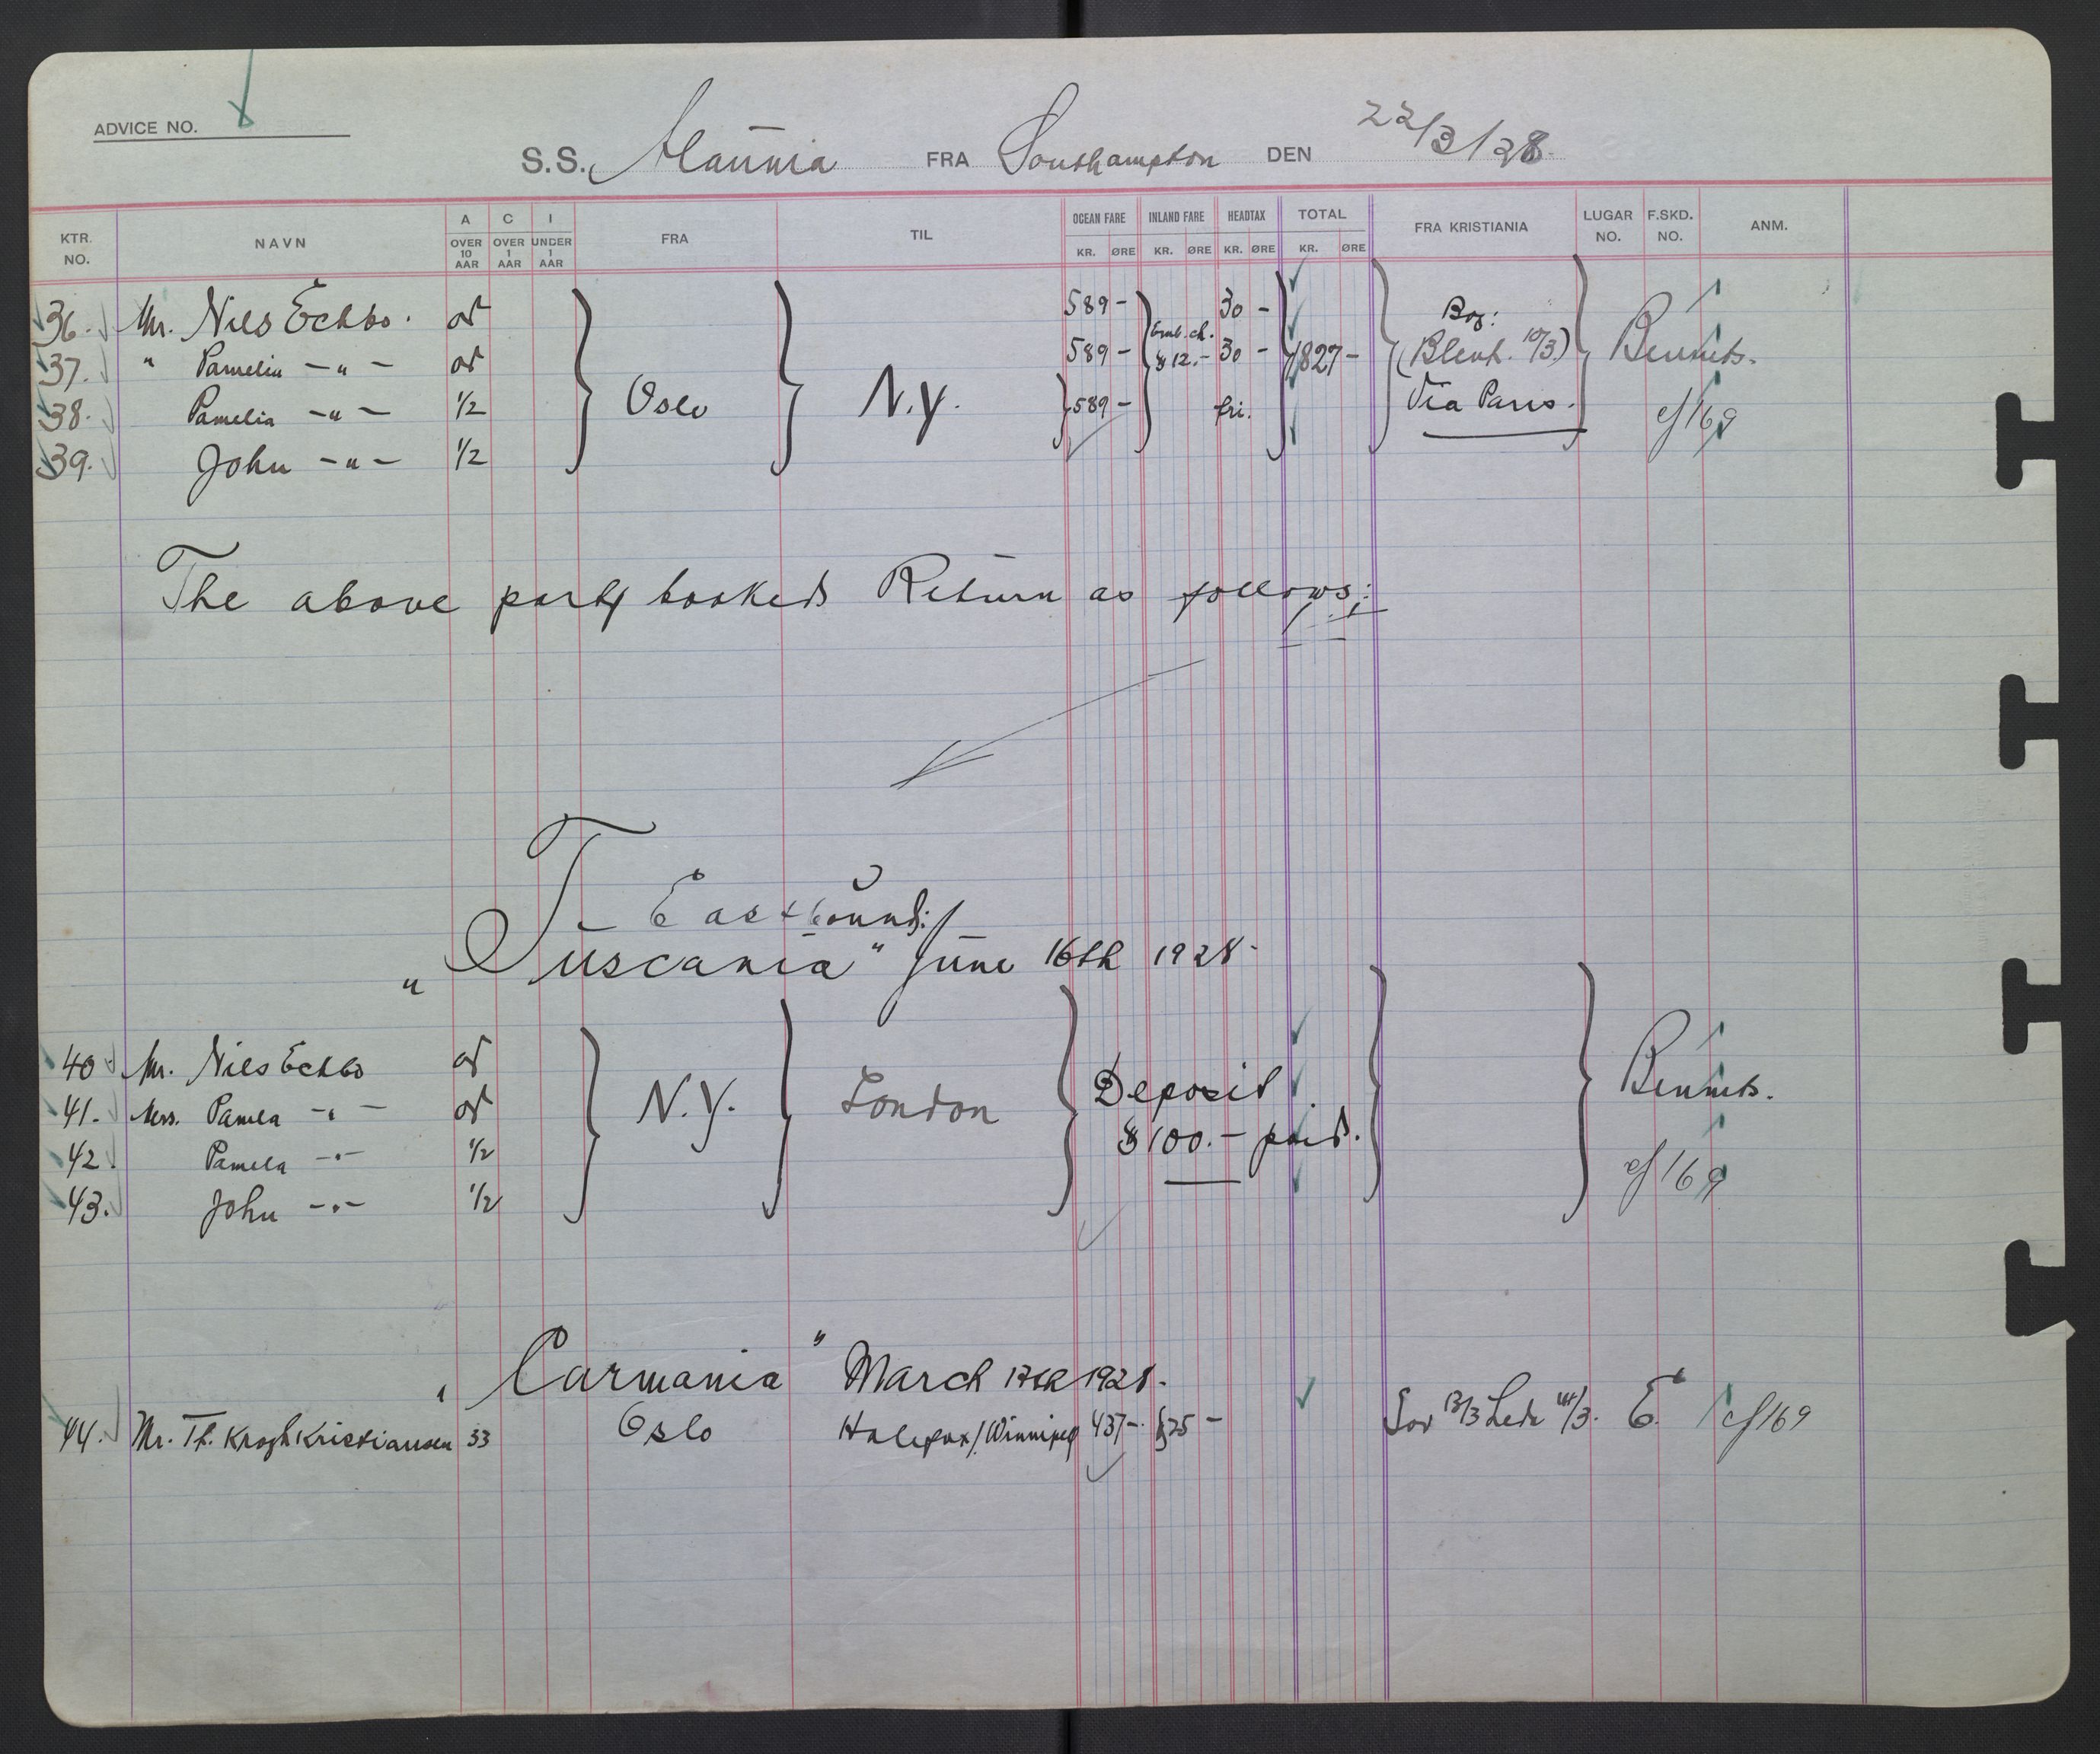 ADVICE NO.
S.S. Alaunia FRA Southampton DEN 22/3/28.
KTR. NO. NAVN A OVER 10 AAR C OVER 1 AAR I UNDER 1 AAR FRA TIL OCEAN FARE KR. ØRE INLAND FARE KR. ØRE HEADTAX KR. ØRE TOTAL KR. ØRE FRA KRISTIANIA LUGAR NO. F.SKD. NO. ANM.
36. Mr. Nils Eckbo. 589- 30 - Bog:
37. " Pamelia -"- 589- $12.- 30 - 1827- (Blenh. 10/3) Bennets.
38. Pamelia -"- 1/2 Oslo N.Y. 589- fri. Via Paris. cf 169
39. John -"- 1/2
The above party booked Return as follows:
Eastbound:
"Tuscania" June 16th 1928-
40 Mr. Nils Eckbo
41. Mrs. Pamela -"- N.Y. London Deposit Bennets.
42. Pamela -"- 1/2 $100.- paid.
43. John -"- 1/2 cf 169
"Carmania" March 17th 1928.
44. Mr. Th. Krogh Kristiansen 33 Oslo Halifax/Winnipeg 437-. $25- 13/3 14/3. E. cf 169